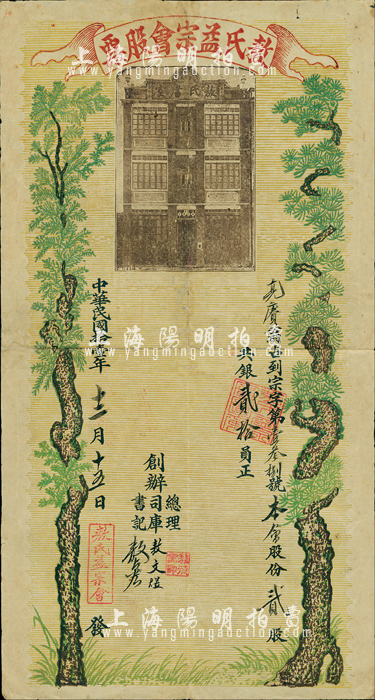 敖氏益宗會股票
敖氏書室
上海陽明拍賣
www.yangmingauction.com
列宗字第壹叁捌號 本會股份貳股
共銀貳拾員正
上海陽明拍賣
www.yangmingauction.com
創辦
總理
司庫敖文
書記
中華民國拾年十二月十五日發
敖氏益宗會
上海陽明拍賣
www.yangmingauction.com